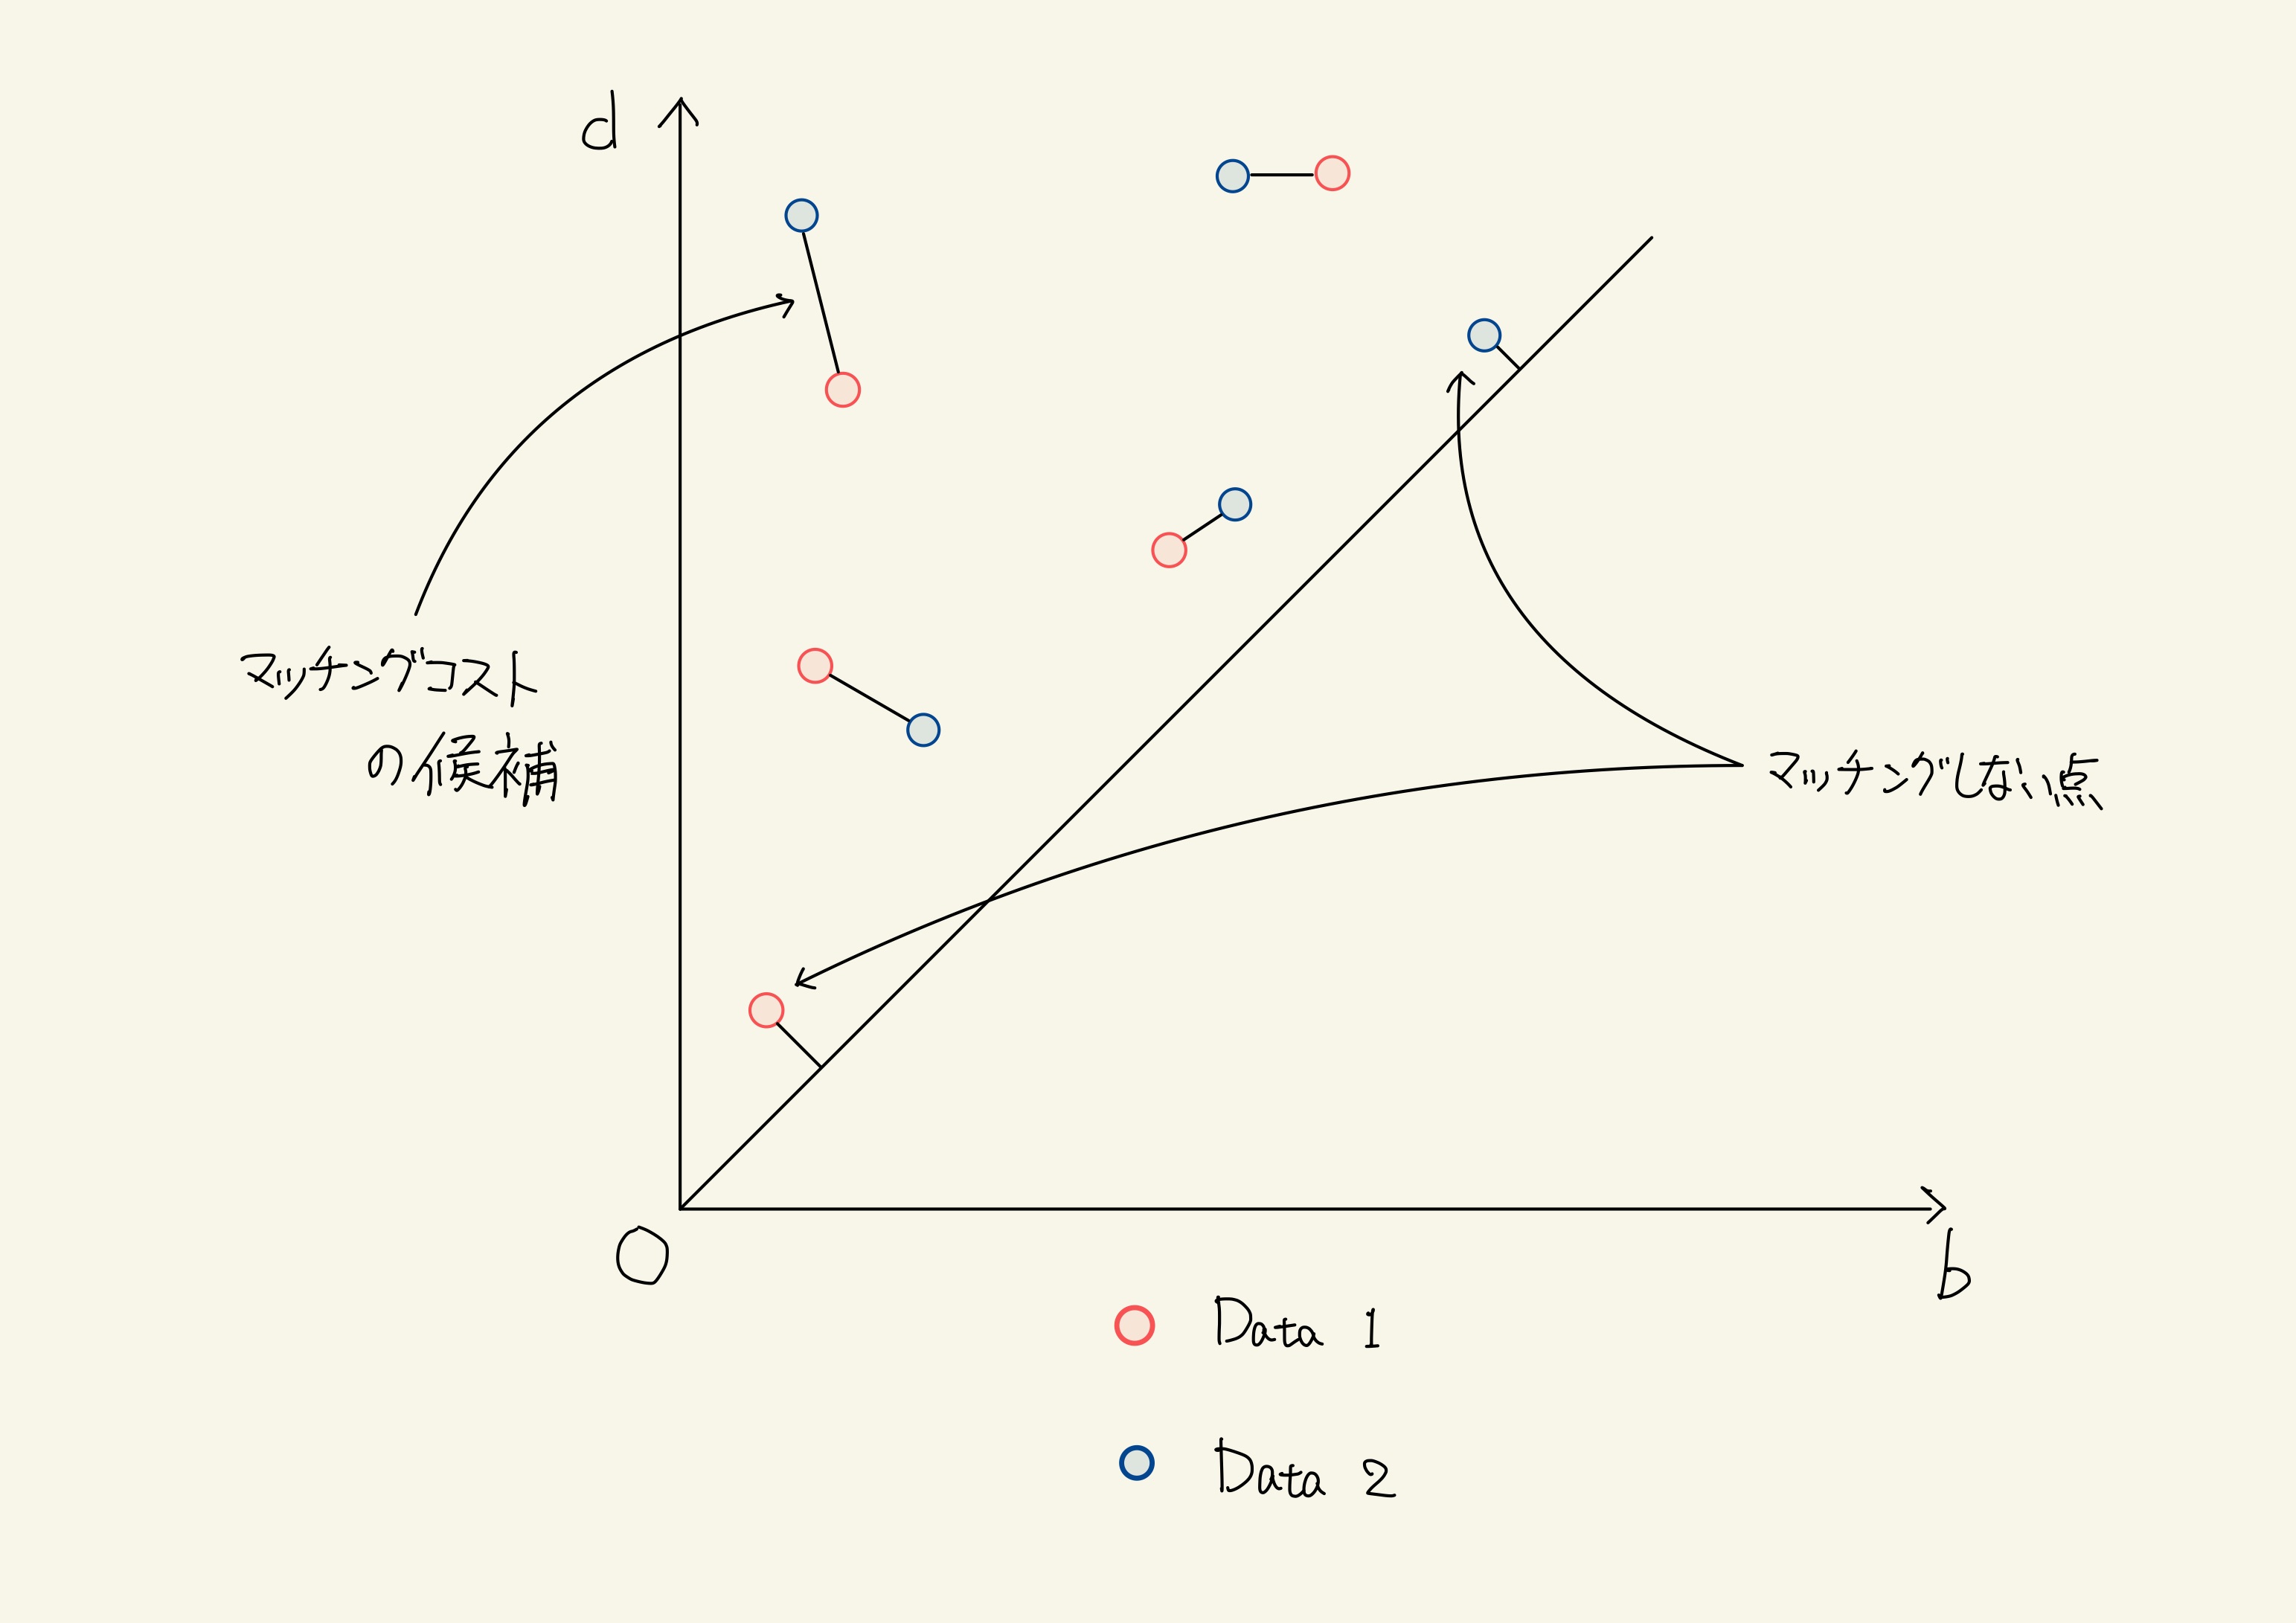 d
マッチングコスト
の候補
マッチングしない点
O
b
Data 1
Data 2